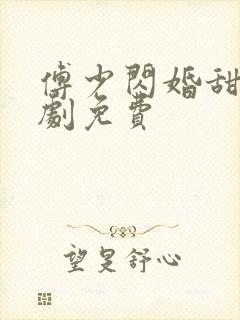 傅少閃婚甜
劇免費
望是舒心